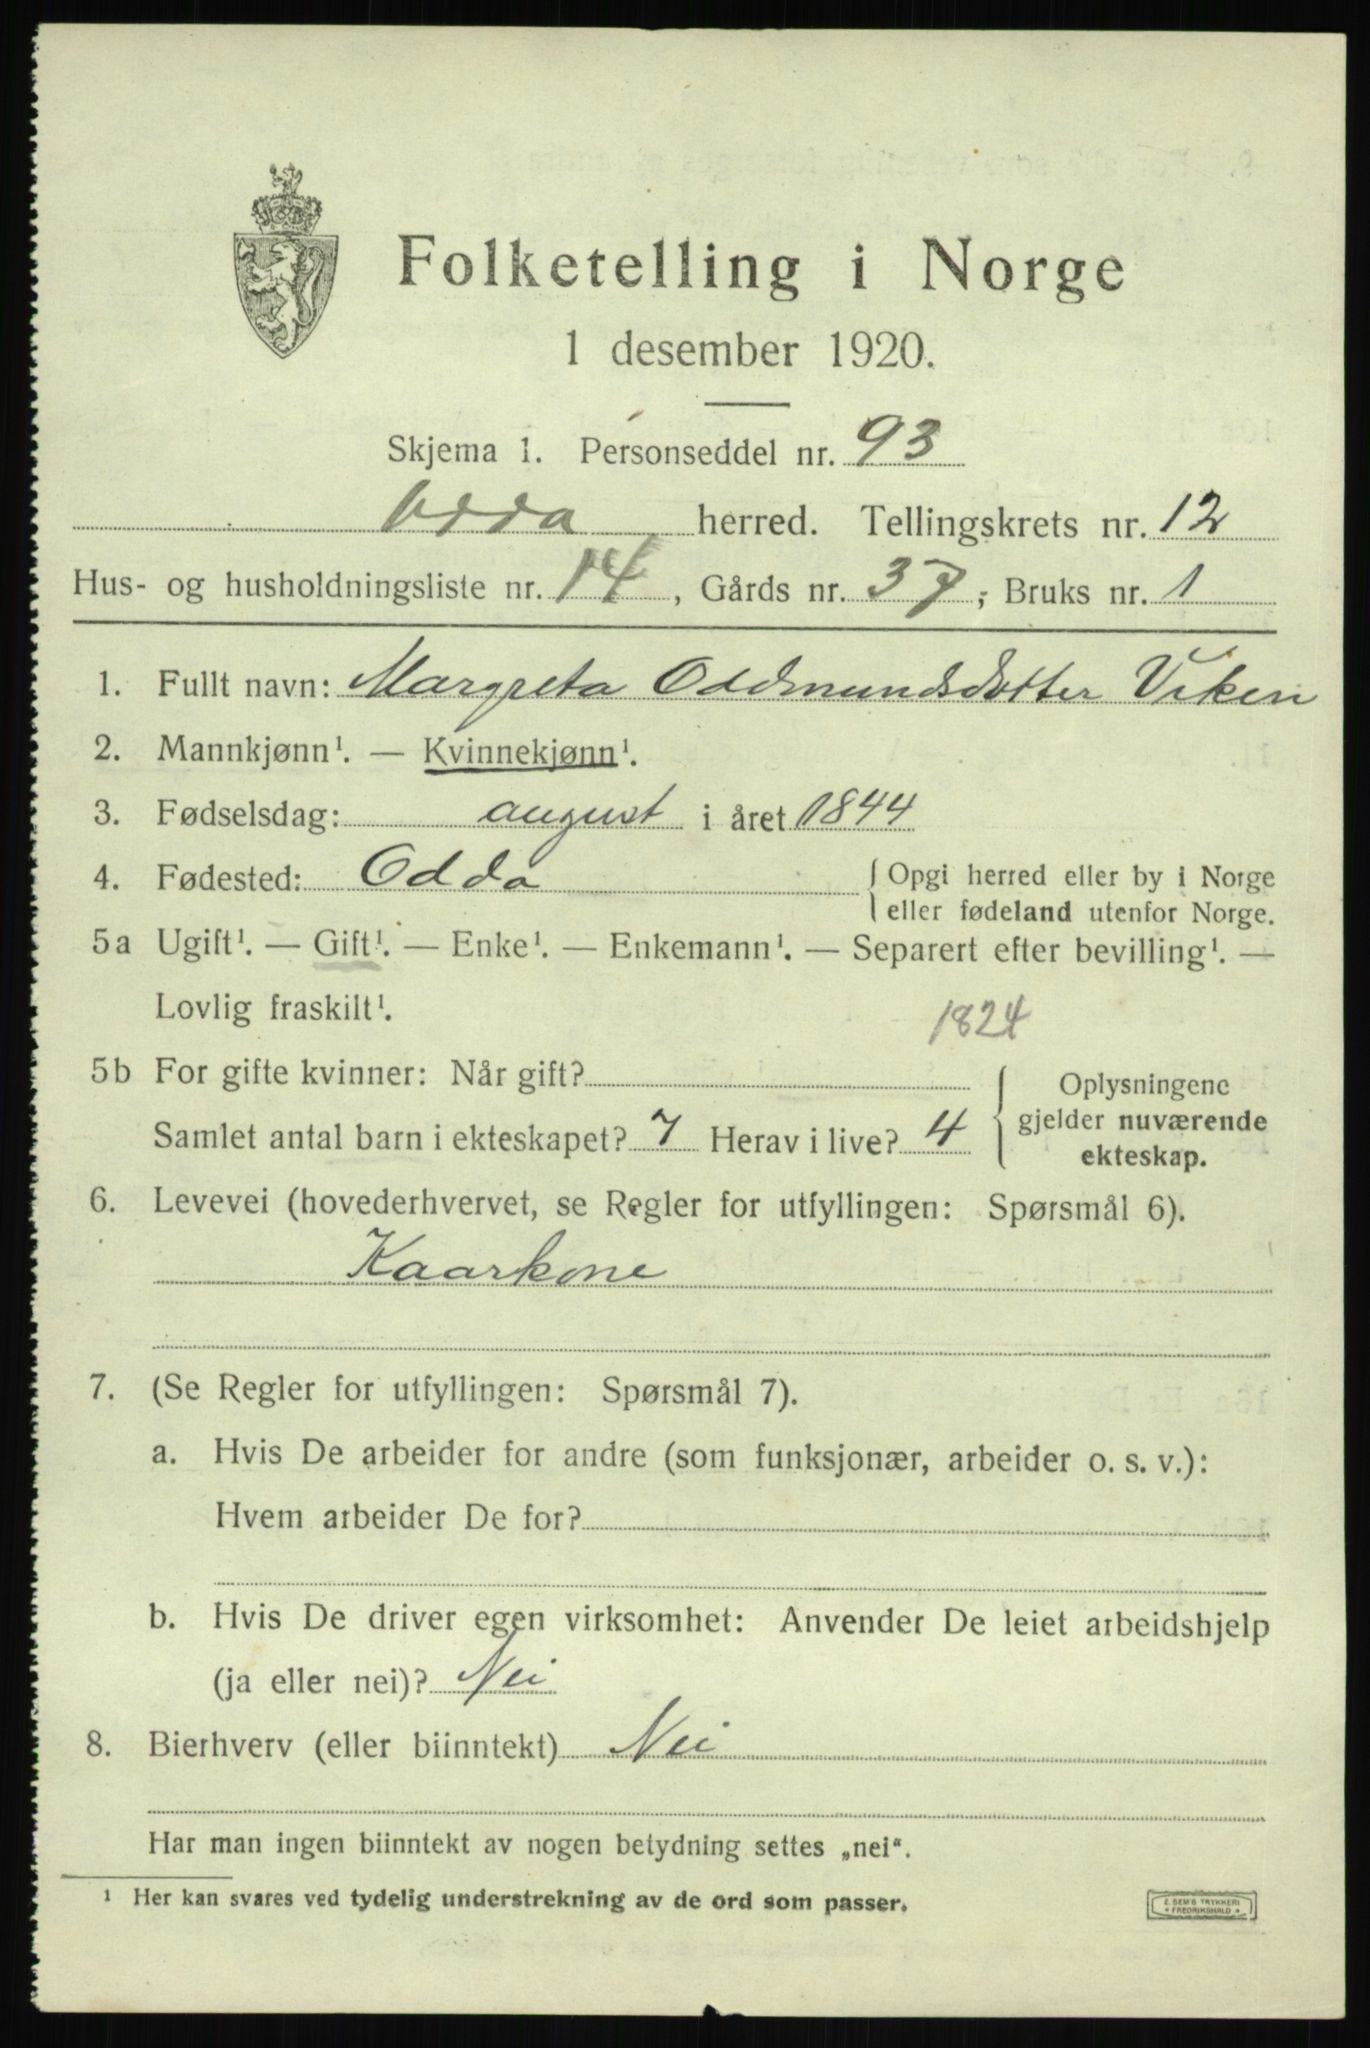 Folketelling i Norge
1 desember 1920.
Skjema 1. Personseddel nr. 93
Odda herred. Tellingskrets nr. 12
Hus- og husholdningsliste nr. 14, Gårds nr. 37, Bruks nr. 1
1. Fullt navn: Margreta Oddmundsdotter Viken
2. Mannkjønn¹. — Kvinnekjønn¹.
3. Fødselsdag: august i året 1844
4. Fødested: Odda { Opgi herred eller by i Norge
eller fødeland utenfor Norge.
5a Ugift¹. — Gift¹. — Enke¹. — Enkemann¹. — Separert efter bevilling¹. —
Lovlig fraskilt¹.
1824
5b For gifte kvinner: Når gift? { Oplysningene
gjelder nuværende
ekteskap.
Samlet antal barn i ekteskapet? 7 Herav i live? 4
6. Levevei (hovederhvervet, se Regler for utfyllingen: Spørsmål 6).
Kaarkone
7. (Se Regler for utfyllingen: Spørsmål 7).
a. Hvis De arbeider for andre (som funksjonær, arbeider o. s. v.):
Hvem arbeider De for?
b. Hvis De driver egen virksomhet: Anvender De leiet arbeidshjelp
(ja eller nei)? Nei
8. Bierhverv (eller biinntekt) Nei
Har man ingen biinntekt av nogen betydning settes „nei“.
¹ Her kan svares ved tydelig understrekning av de ord som passer.
E. SEM'S TRYKKERI
FREDRIKSHALD